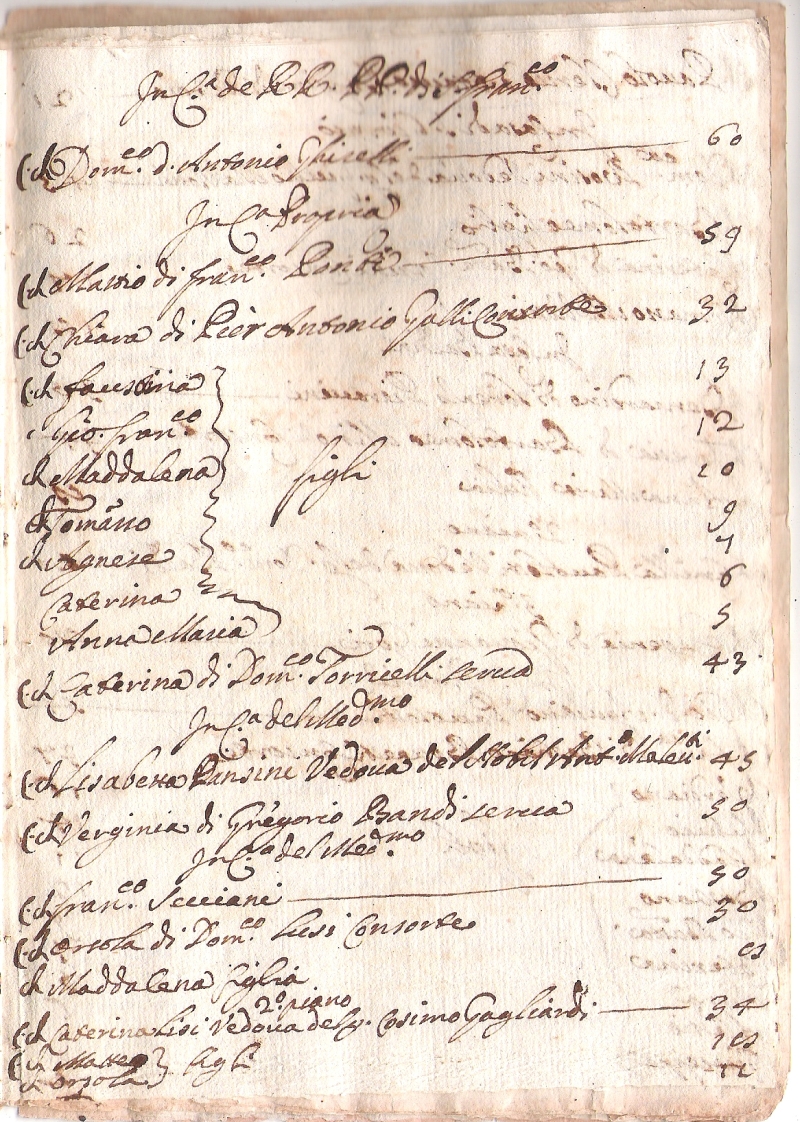 In C.a de RR. PP. di S. Fran.co
(.ch Dom.co d. Antonio Ghiselli 60
In C.a Propria
(.ch Mattio di Fran.co Ponti 59
(.ch Chiara di Pier Antonio Galli Consorte 32
(.ch Faustina 13
c Gio. Fran.co 12
ch Maddalena figli 10
ch Tomasso 9
ch Agnese 7
Caterina 6
Anna Maria 5
(.ch Caterina di Dom.co Torricelli serva 43
In C.a del Med.mo
(.ch Lisabetta Pansini Vedova del Nobil Ant.o 45
(.ch Verginia di Gregorio Bandi serva 50
In C.a del Med.mo
(.ch Fran.co Secciani 50
(.ch Orsola di Dom.co Lisi Consorte 30
ch Maddalena figlia
2.o piano
(.ch Caterina Lisi Vedova del q. Cosimo Gagliardi 34
(.ch Matteo figli
ch Orsola